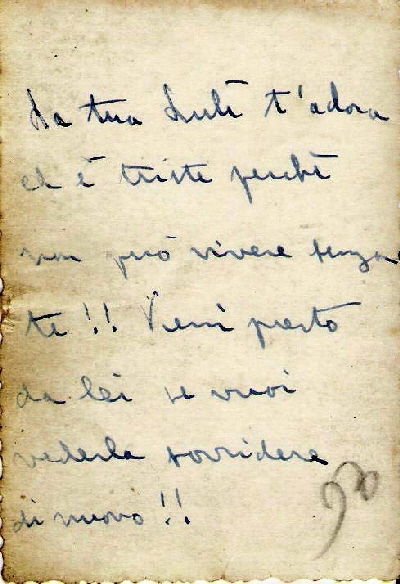 La tua Lulù t'adora
ed è triste perchè
non può vivere senza
te!! Vieni presto
da lei se vuoi
vederla sorridere
di nuovo!!